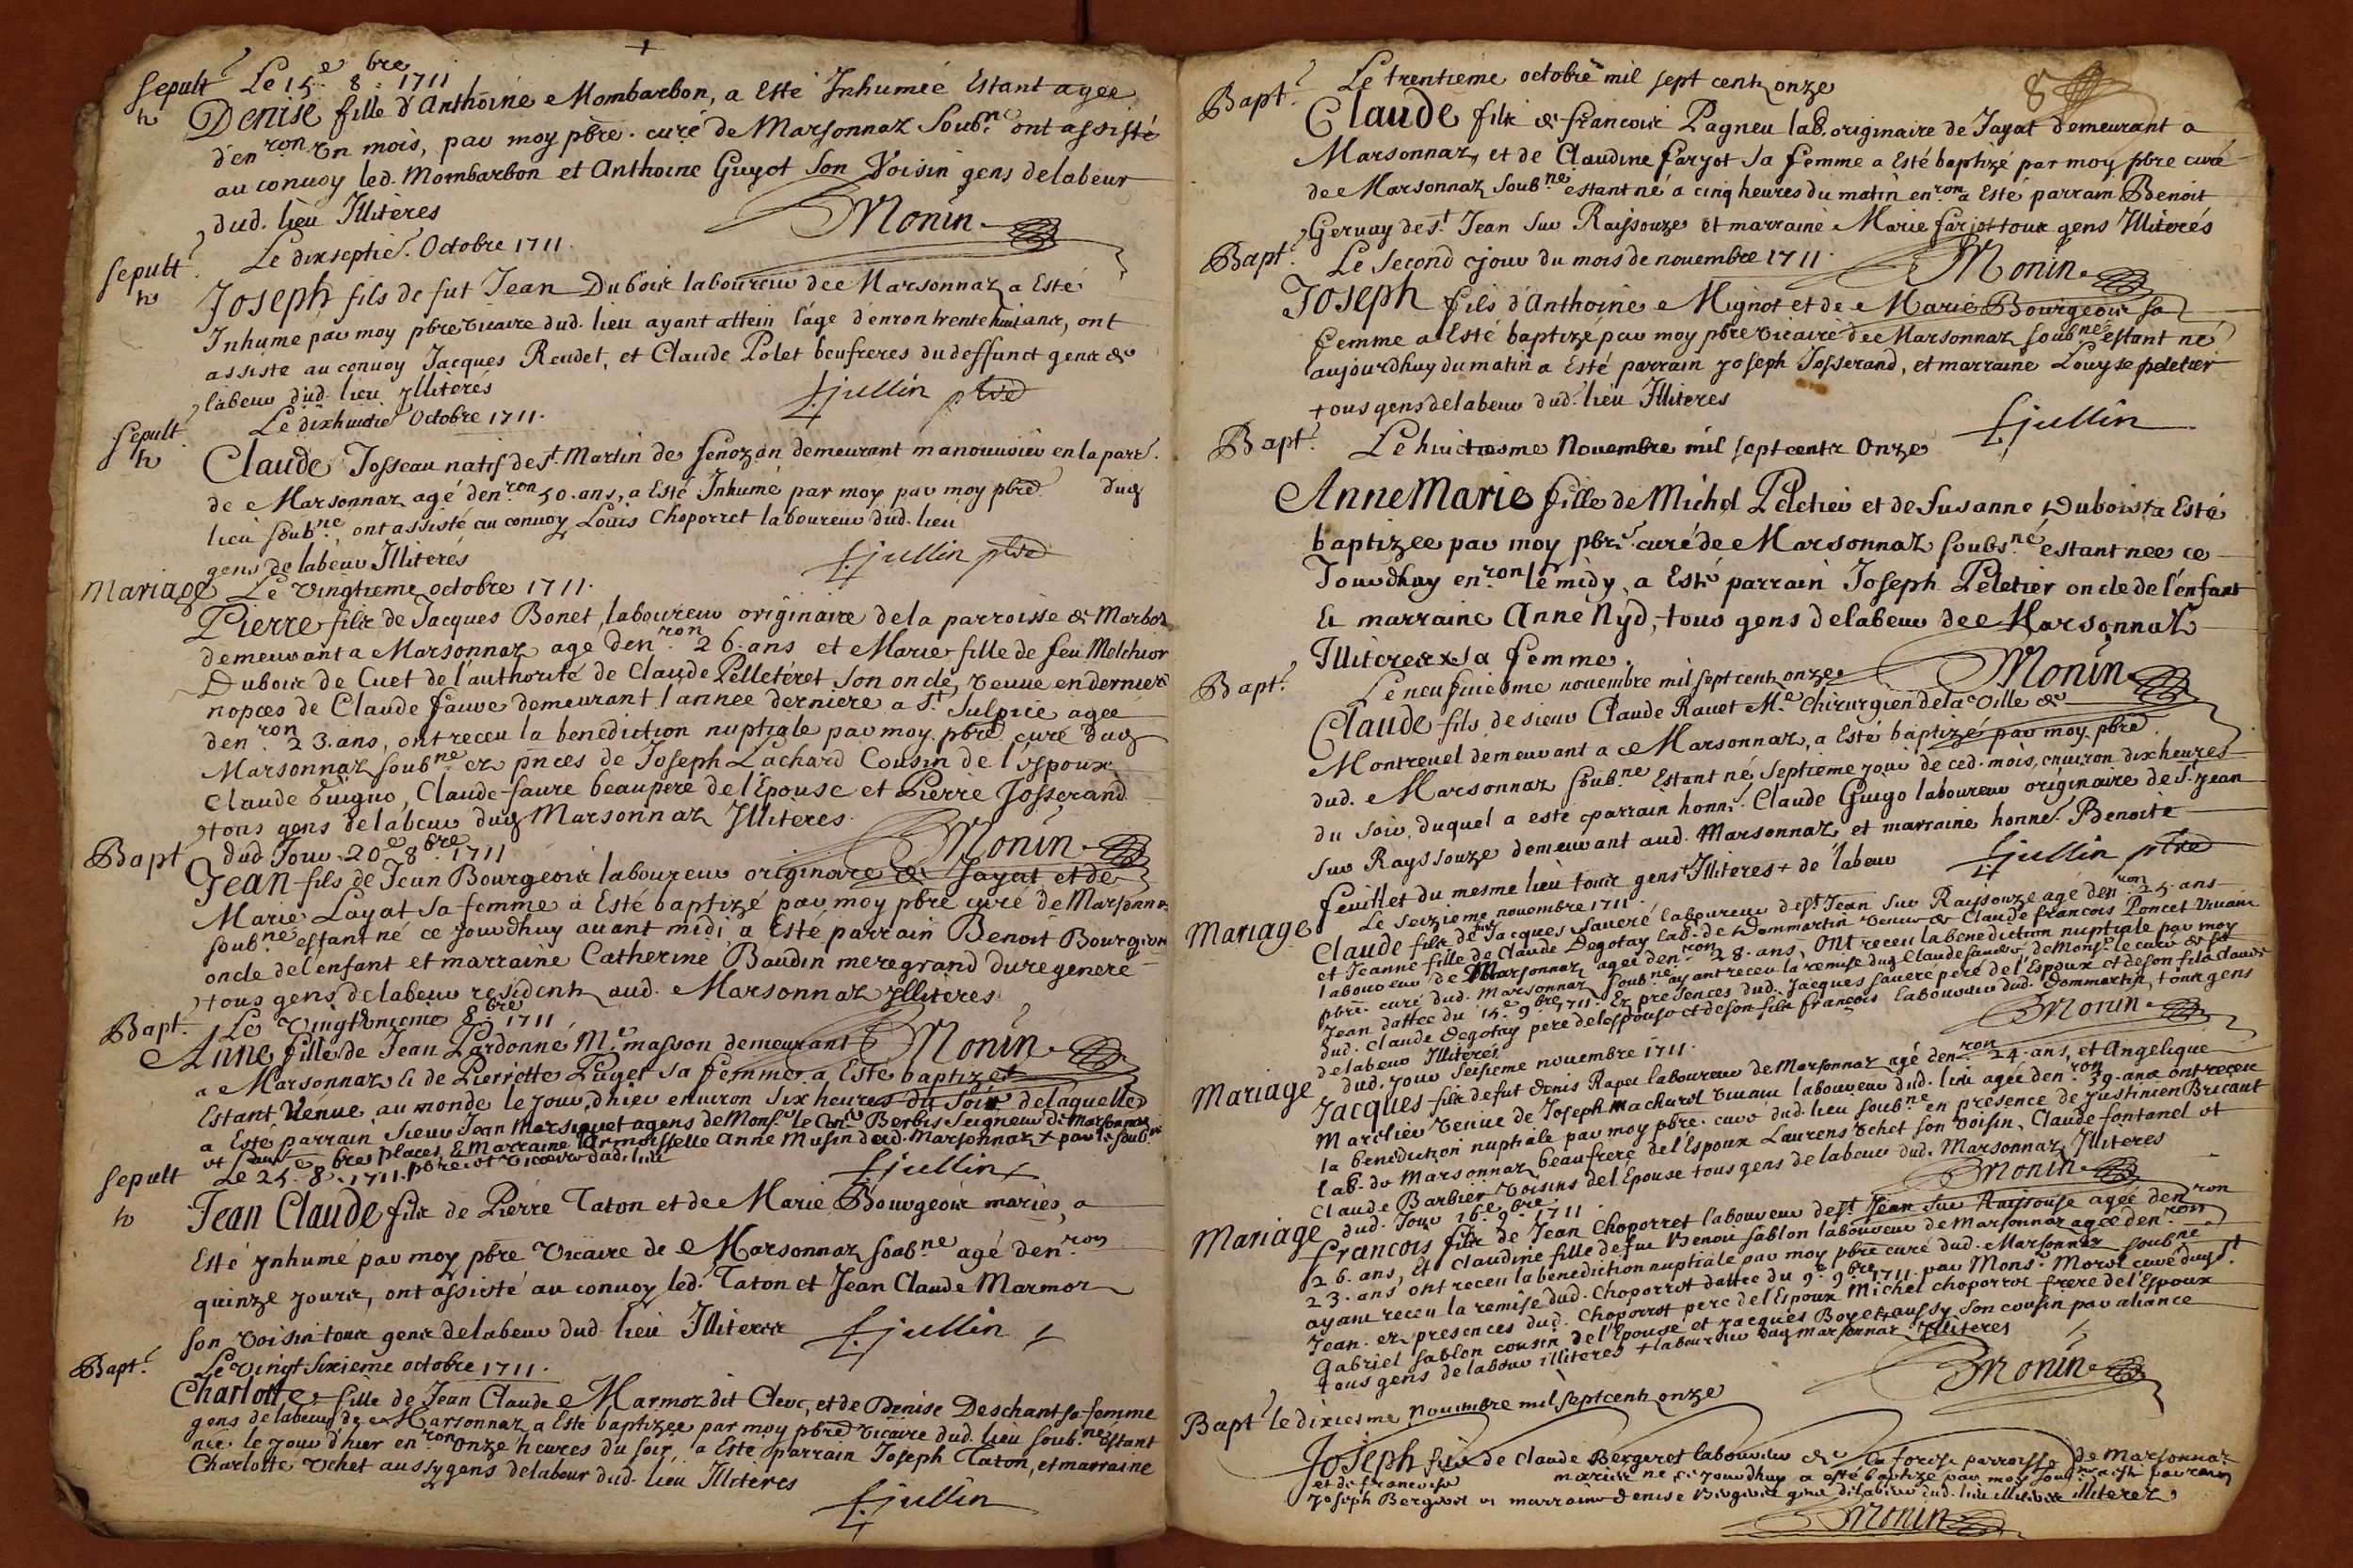 Sepult.
Le 15e 8bre 1711
Denise fille d'Anthoine Mombarbon, a Esté Inhumée Estant agée
d'enron Un mois, par moy pbre. curé de Marsonnaz Soubne. ont assisté
au convoy led. Mombarbon et Anthoine Guyot son Voisin gens de labeur
dud. lieu Illiteres
Monin
Sepult.
Le dixseptie. Octobre 1711.
Joseph fils de fut Jean Dubois laboureur de Marsonnaz a Esté
Inhume par moy pbre vicaire dud. lieu ayant attein l'age d'enron trente huit ans, ont
assiste au convoy Jacques Reudet, et Claude Polet beufreres du deffunct gens de
labeur dud. lieu Illiteres
F. jullin pbre
Sepult.
Le dixhuictie Octobre 1711.
Claude Josseau natif de St. Martin de Senozan demeurant manouvrier en la parr.
de Marsonnaz agé denron 50. ans, a Esté Inhumé par moy par moy pbre dud
lieu soubne, ont assisté au convoy Louis Choporret laboureur dud. lieu
gens de labeur Illiterés
F. jullin pbre
Mariage
Le Vingtieme octobre 1711.
Pierre fils de Jacques Bonet, laboureur originaire de la parroisse de Marboz
demeurant a Marsonnaz agé denron 26. ans et Marie fille de feu Melchior
Dubois de Cuet de l'authorité de Claude Pelleteret son oncle, veuve en derniere
nopces de Claude faure demeurant l'annee derniere a St. Sulpice agee
denron 23. ans, ont receu la benediction nuptiale par moy pbre curé dud
Marsonnaz soubne ez pnces de Joseph Lachard Cousin de l'espoux
Claude Guigno, Claude faure beaupere de l'Epouse et Pierre Josserand
tous gens de labeur dud Marsonnaz Illiteres.
Monin
Bapt.
dud Jour 20e 8bre 1711
Jean fils de Jean Bourgeois laboureur originaire de Jayat et de
Marie Layat sa femme a Esté baptizé par moy pbre curé de Marsonna
soubne estant né ce jourdhuy avant midi a Esté parrain Benoit Bourgion
oncle de l'enfant et marraine Catherine Baudin meregrand du regeneré
tous gens de labeur residents aud. Marsonnaz Illiteres
Monin
Bapt.
Le Vingtunieme 8bre 1711
Anne fille de Jean Pardonné Me masson demeurant
a Marsonnaz & de Pierrette Puget sa femme a Esté baptizee
Estant Vénue au monde le jour d'hier environ six heures du soir de laquelle
a Esté parrain Sieur Jean Marsiquet agens de Monsr. le Con.er Berbis Seigneur de Marsonnaz
et autres places, & Marraine Damoisselle Anne Musin dud. Marsonnaz x par le soubne
pbre et vicaire dud. lieu
F. jullin
Sepult
Le 25e 8bre 1711.
Jean Claude fils de Pierre Taton et de Marie Bourgeois mariés, a
Esté Inhumé par moy pbre Vicaire de Marsonnaz soubne agé denron
quinze jours, ont assisté au convoy led. Taton et Jean Claude Marmoz
son voisin tous gens de labeur dud. lieu Illiteres
F. jullin
Bapt.
Le Vingt sixieme octobre 1711.
Charlotte fille de Jean Claude Marmoz dit Clerc, et de Denise Deschant sa femme
gens de labeur de Marsonnaz a Esté baptizee par moy pbre vicaire dud. lieu soubne. estant
née le jour d'hier enron onze heures du soir, a Esté parrain Joseph Taton, et marraine
Charlotte Vchet aussy gens de labeur dud. lieu Illiteres
F. jullin
8
Bapt.
Le trentieme octobre mil sept cents onze
Claude fils de francois Pagneu lab. originaire de Jayat demeurant a
Marsonnaz, et de Claudine farjot sa femme a Esté baptizé par moy pbre curé
de Marsonnaz soubne estant né a cinq heures du matin enron a Esté parrain Benoit
Gervay de St. Jean sur Raissouze et marraine Marie farjot tous gens Illiterés
Monin
Bapt.
Le Second jour du mois de novembre 1711.
Joseph fils d'Anthoine Mignot et de Marie Bourgeois sa
femme a Esté baptizé par moy pbre vicaire de Marsonnaz soubne estant né
aujourdhuy du matin a Esté parrain Joseph Josserand, et marraine Louyse peletier
tous gens de labeur dud. lieu Illiteres
F. jullin
Bapt.
Le huictiesme Novembre mil sept cents Onze
Anne Marie fille de Michel Peletier et de Susanne Dubois x a Esté
baptizee par moy pbre. curé de Marsonnaz soubsné estant nee ce
Jourdhuy enron le midy, a Esté parrain Joseph Peletier oncle de l'enfant
& marraine Anne Nyd, tous gens de labeur de Marsonnaz
Illiteres x sa femme.
Monin
Bapt.
Le neufviesme novembre mil sept cents onze
Claude fils de sieur Claude Ravet Me. Chirurgien de la Ville de
Montrevel demeurant a Marsonnaz, a Esté baptizé par moy pbre
dud. Marsonnaz soubne Estant né septieme jour de ced. mois, environ dix heures
du soir, duquel a este parrain honn. Claude Guigo laboureur originaire de St. Jean
sur Rayssouze demeurant aud. Marsonnaz et marraine honne. Benoite
feuillet du mesme lieu tous gens + Illiteres + de labeur
F. jullin pbre
Mariage
Le Seizieme novembre 1711.
Claude fils de Jacques Saveré laboureur de St Jean sur Raissouze agé denron 25. ans
et Jeanne fille de Claude Degotay lab. de Dommartin veuve de Claude francois Poncet vivant
laboureur de Marsonnaz agée denron 28. ans, Ont receu la benediction nuptiale par moy
pbre. curé dud. Marsonnaz soubne ayant receu la remise dud Claude Saveré de Monsr. le curé de St
Jean dattée du 15e 9bre 1711. Ez presences dud. Jacques Saveré pere de l'Espoux et de son fils Claude
dud. Claude Degotay pere de l'espouse et de son fils francois laboureur dud. Dommartin, tous gens
de labeur Illiteres
Monin
Mariage
dud. jour Seisieme novembre 1711.
Jacques fils de fut Denis Rapet laboureur de Marsonnaz agé denron 24. ans, et Angelique
Marelier Veuve de Joseph Machurel vivant laboureur dud. lieu agée denron 39. ans ont receu
la benediction nuptiale par moy pbre. curé dud. lieu soubne en presence de Justinien Bricaut
lab. de Marsonnaz beaufrere de l'Espoux Laurens Vchet son voisin, Claude fontanel et
Claude Barbier voisins de l'Epouse tous gens de labeur dud. Marsonnaz Illiteres
Monin
Mariage
dud. Jour 16e 9bre 1711.
Francois fils de Jean Choporret laboureur de St. Jean sur Raissouse agée denron
26. ans, Et Claudine fille de fut Benoit Sablon laboureur de Marsonnaz agée denron
23. ans ont receu la benediction nuptiale par moy pbre curé dud. Marsonnaz soubne
ayant receu la remise dud. Choporret dattee du 9e 9bre 1711. par Monsr. Morel curé dud St.
Jean. ez presences dud. Choporret pere de l'Espoux Michel choporret frere de l'Espoux
Gabriel Sablon cousin de l'Epouse et Jacques Boyet + aussy son cousin par aliance
tous gens de labeur illiteres + laboureur dud Marsonnaz Illiteres
Monin
Bapt.
le dixiesme Novembre mil sept cents onze
Joseph fils de Claude Bergeret laboureur de la forest parroisse de Marsonnaz
et de francoise mariés né ce jourdhuy a esté baptizé par moy soubne a esté parrain
Joseph Bergeret et marraine Denise gens de labeur dud. lieu illiteres
Monin